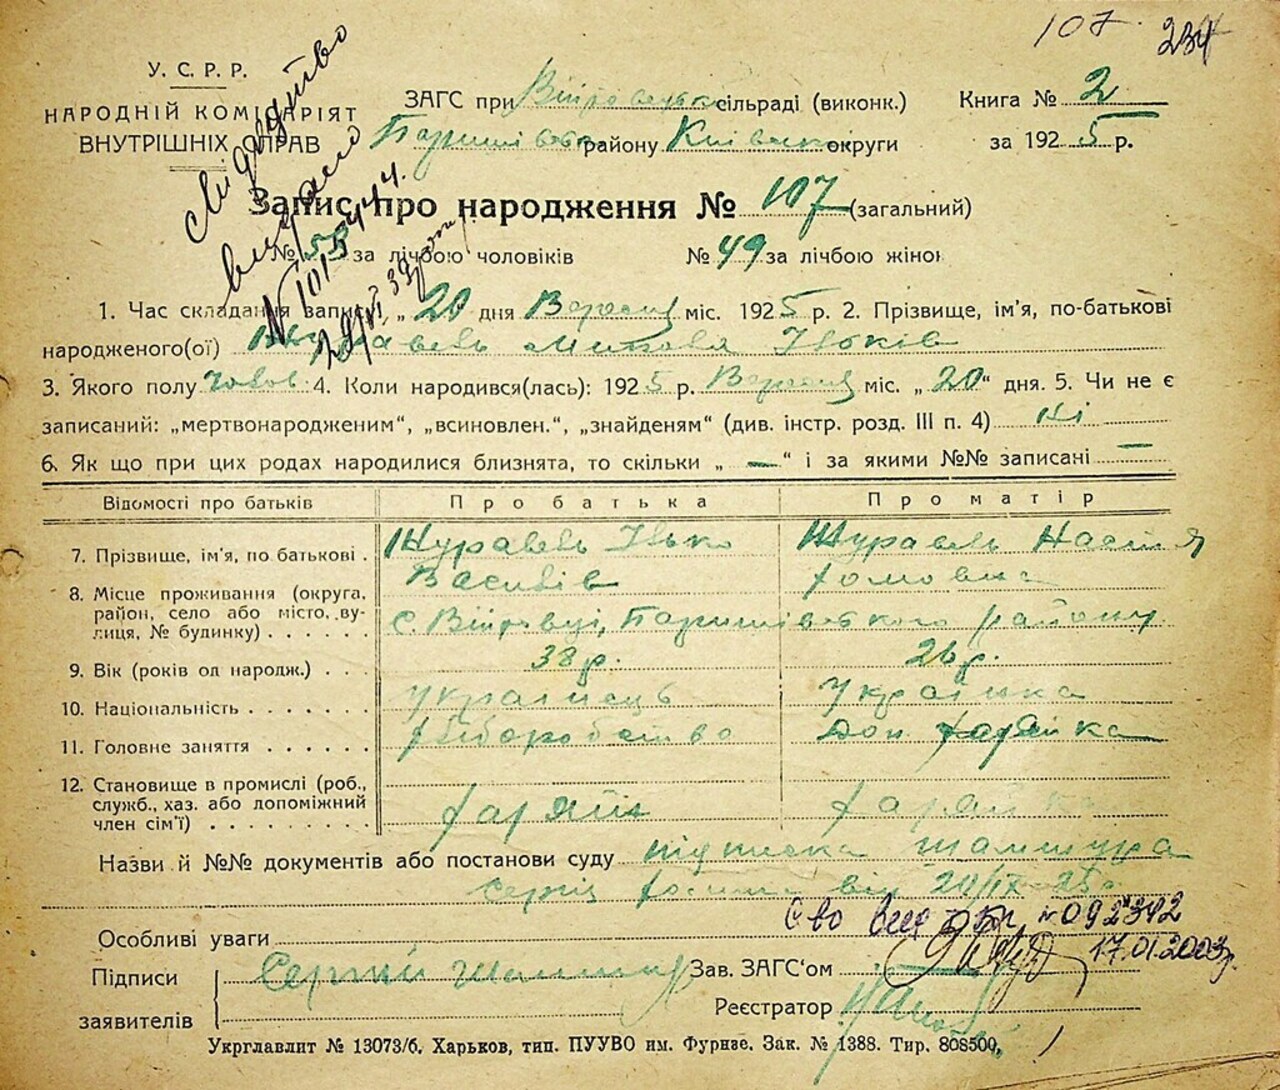 107. 234
У. С. Р. Р.
НАРОДНІЙ КОМІСАРІЯТ
ВНУТРІШНІХ СПРАВ
ЗАГС при Війтовецькій сільраді (виконк.)
Баришівськ району Київської округи
Книга № 2
за 1925 р.
Свидоцтво
видано
Запис про народження № 107 (загальний)
№ 58 за лічбою чоловіків № 49 за лічбою жінок
1. Час складання запису, „20 дня Вересня міс. 1925 р. 2. Прізвище, ім'я, по-батькові
народженого(ої) Журавель Микола Івьків
3. Якого полу Чолов. 4. Коли народився(лась): 1925 р. Вересня міс. „20“ дня. 5. Чи не є
записаний: „мертвонародженим“, „всиновлен.“, „знайденям“ (див. інстр. розд. III п. 4) Ні
6. Як що при цих родах народилися близнята, то скільки „ — “ і за якими №№ записані —
Відомості про батьків Про батька Про матір
7. Прізвище, ім'я, по батькові . Журавель Івько Журавель Настя
Василів Хомовна
8. Місце проживання (округа, район, село або місто, вулиця, № будинку) . . . . . . с. Війтівці, Баришівського району
9. Вік (років од народж.) . . . 38 р. 26 р.
10. Національність . . . . . . . українець українка
11. Головне заняття . . . . . . хліборобство доп. хазяйка
12. Становище в промислі (роб., служб., хаз. або допоміжний член сім'ї) . . . . . . . . хазяїн хазяйка
Назви й №№ документів або постанови суду підписка Шамшура
Сергія Хоми від 20/IX-25р.
Особливі уваги
Св-во № 092342
17.01.2003р.
Підписи
заявителів Сергій Шамшур
Зав. ЗАГС'ом
Реєстратор
Укрглавліт № 13073/б. Харьков, тип. ПУУВО им. Фрунзе. Зак. № 1388. Тир. 808500.